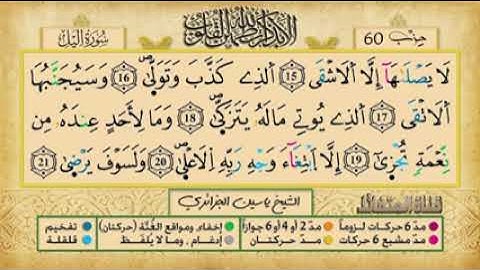 سُورَةُ اليْل
أَلَا بِذِكْرِ اللَّهِ تَطْمَئِنُّ الْقُلُوبُ
حِزْبُ 60
لَا يَصْلَىٰهَآ إِلَّا اَلَاشْقَى 15 اَلذِے كَذَّبَ وَتَوَلّ۪يٰۖ 16 وَسَيُجَنَّبُهَا
اَلَاتْقَى 17 اَلذِے يُوتِے مَالَهُۥ يَتَزَكّ۪يٰۖ 18 وَمَا لِأَحَدٍ عِندَهُۥ مِن
نِّعْمَةٖ تُجْز۪يٰٓ 19 إِلَّا اَبْتِغَآءَ وَجْهِ رَبِّهِ اِلَاعْل۪يٰۖ 20 وَلَسَوْفَ يَرْض۪يٰۖ 21
الشيخ ياسين الجزائري
مدّ 6 حركات لزوماً مدّ 2 أو 4 أو 6 جوازاً إخفاء ومواقع الغُنَّة (حركتان) تفخيم
مدّ مشبع 6 حركات مدّ حركتان إدغام، وما لا يُلفَظ قلقلة